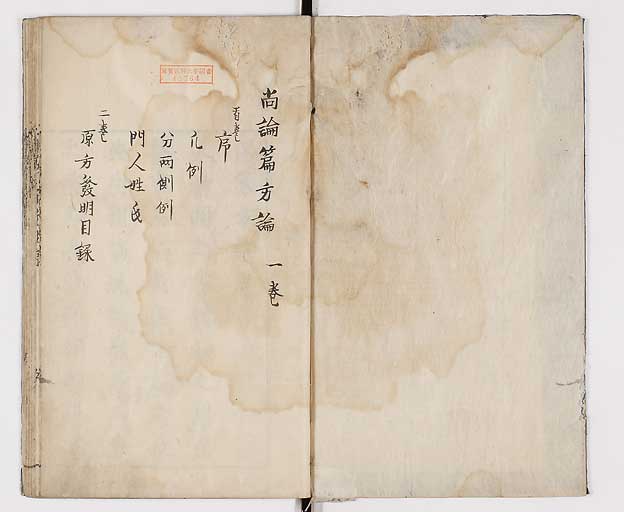 尚論篇方論 一卷
首卷
序
凡例
分兩則例
門人姓氏
二卷
原方發明目録